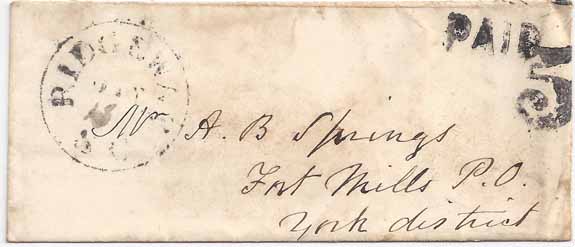 PAID
5
RIDGEWAY
S.C.
Mr A. B Springs
Fort Mills P.O.
York district